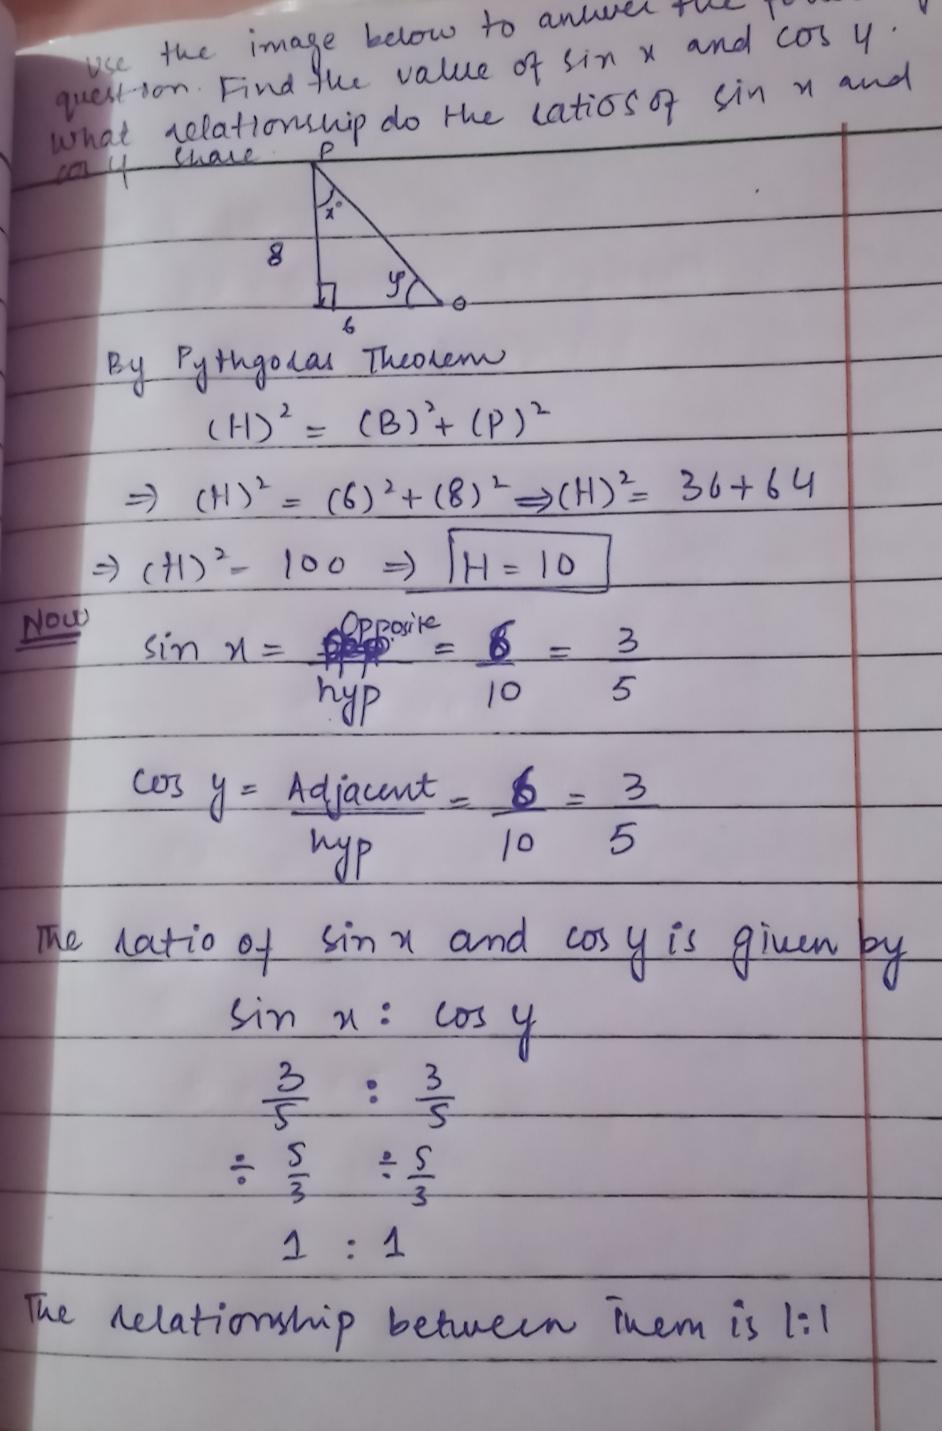 Use the image below to answer the
question. Find the value of sin x and cos y.
What relationship do the ratios of sin x and
cos y share.
P
x°
8
y
θ
6
By Pythgoras Theorem
(H)² = (B)² + (P)²
⇒ (H)² = (6)² + (8)² ⇒ (H)² = 36 + 64
⇒ (H)² = 100 ⇒ H = 10
Now
sin x = Opposite/hyp = 6/10 = 3/5
cos y = Adjacent/hyp = 6/10 = 3/5
The ratio of sin x and cos y is given by
sin x : cos y
3/5 : 3/5
÷ 5/3 ÷ 5/3
1 : 1
The relationship between them is 1:1